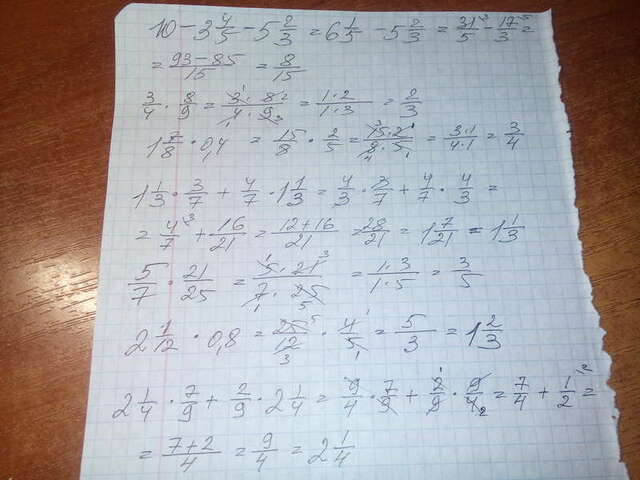 10 - 3 4/5 - 5 2/3 = 6 1/5 - 5 2/3 = 31/5 ³ - 17/3 ⁵ =
= 93-85/15 = 8/15
3/4 · 8/9 = 3¹ · 8²/4₁ · 9₃ = 1·2/1·3 = 2/3
1 7/8 · 0,4 = 15/8 · 2/5 = 15³·2¹/8₄·5₁ = 3·1/4·1 = 3/4
1 1/3 · 3/7 + 4/7 · 1 1/3 = 4/3 · 3/7 + 4/7 · 4/3 =
= 4/7 ³ + 16/21 = 12+16/21 = 28/21 = 1 7/21 = 1 1/3
5/7 · 21/25 = 5¹ · 21³/7₁ · 25₅ = 1·3/1·5 = 3/5
2 1/12 · 0,8 = 25⁵/12₃ · 4¹/5₁ = 5/3 = 1 2/3
2 1/4 · 7/9 + 2/9 · 2 1/4 = 9/4 · 7/9 + 2¹/9 · 9/4₂ = 7/4 + 1/2 ² =
= 7+2/4 = 9/4 = 2 1/4